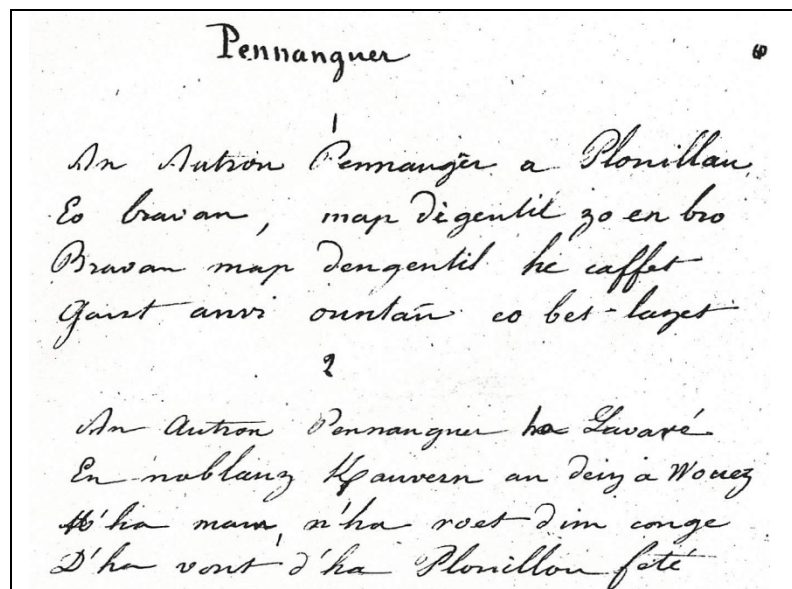 Pennanguer
1
An Autron Pennangũer a Plouillau
Eo bravan, map digentil zo en bro
Bravan map dengentil he caffet
Gant anvi ountañ eo bet-lazet
2
An Autron Pennanguer ha Lavaré
En noblanz Kauvern an deiz a Wouez
N'ha mam n'ha roet dim conge
D'ha vont d'ha Plouillou feté